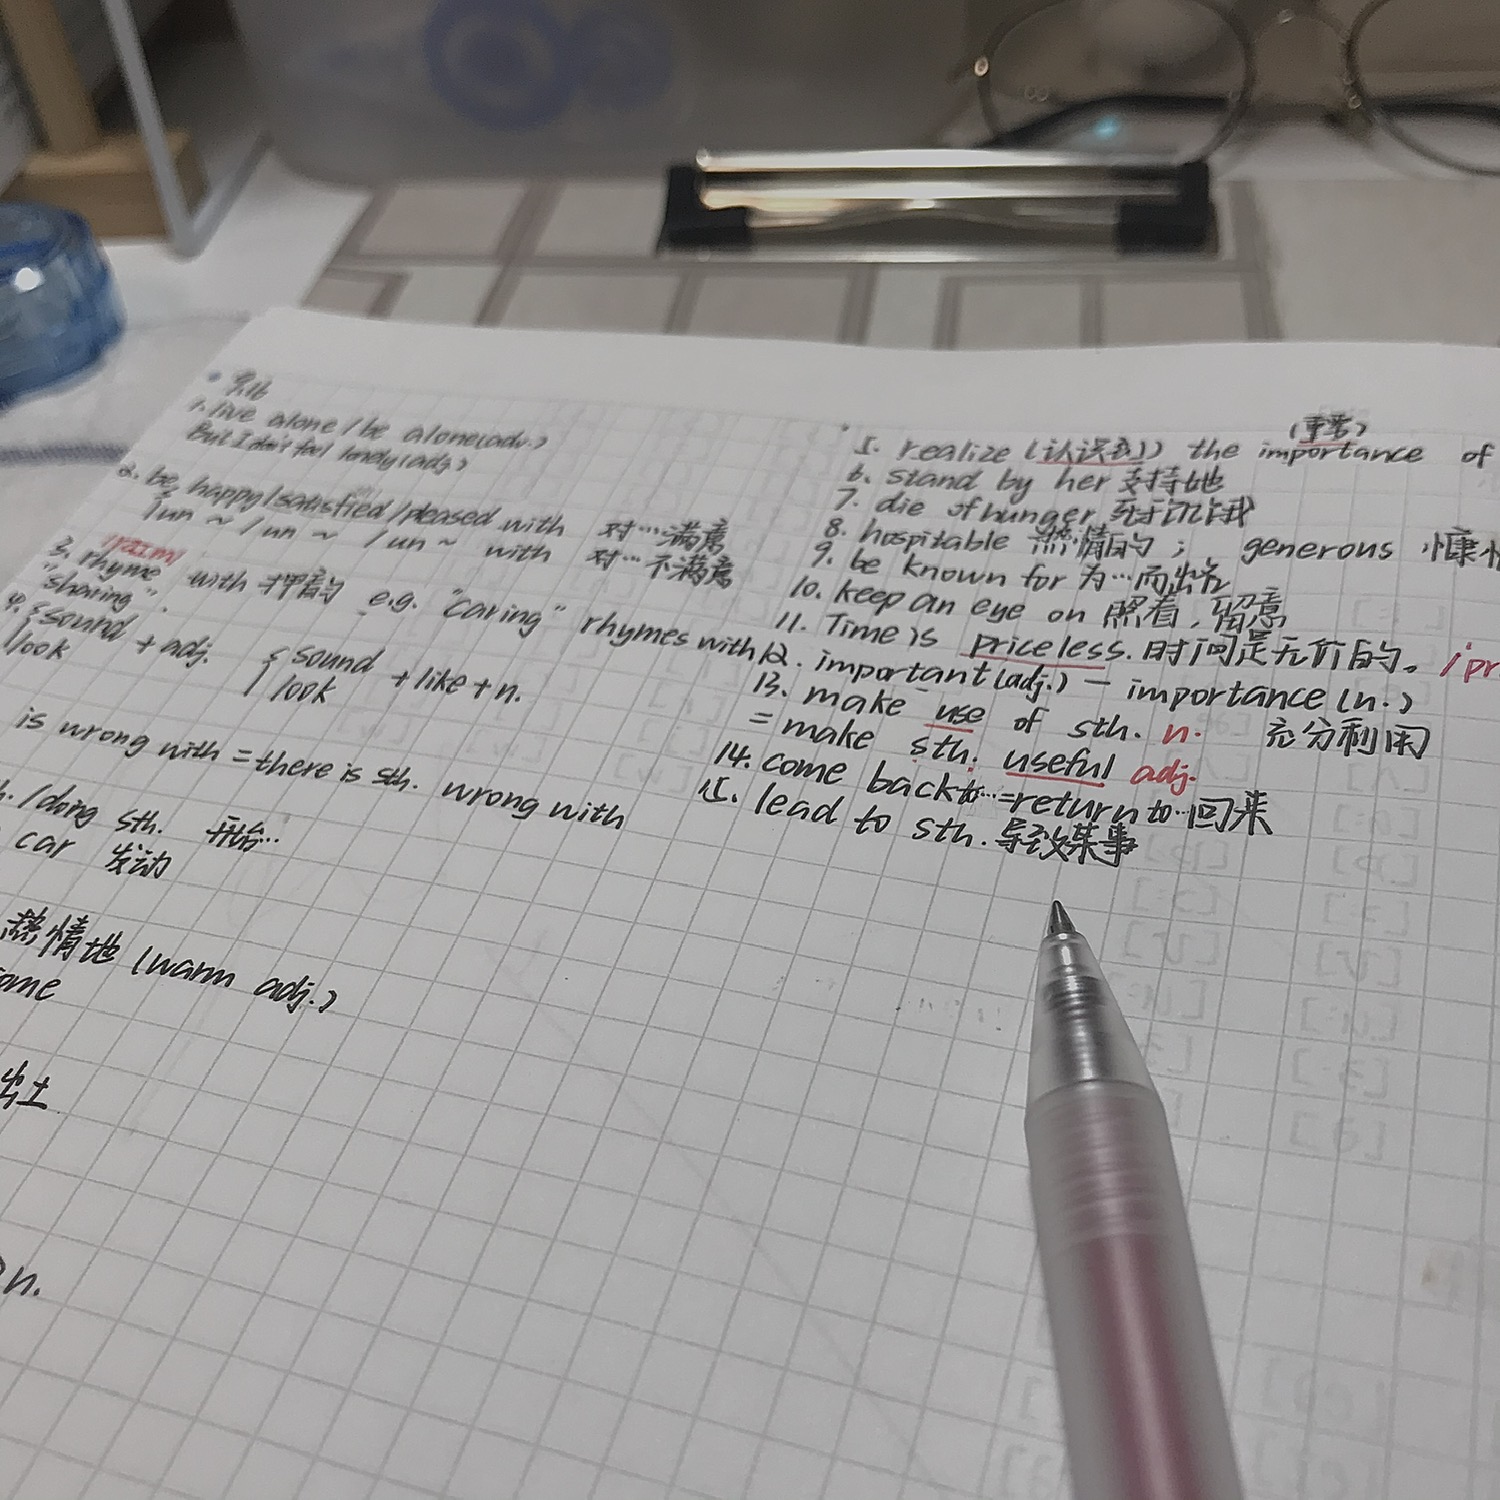 9.16
1. live alone / be alone (adv.)
But I don't feel lonely (adj.)
2. be happy / satisfied / pleased with 对…满意
un ~ / un ~ / un ~ with 对…不满意
/raɪm/
3. rhyme with 押韵 e.g. "caring" rhymes with
"sharing".
4. { sound + adj. { sound + like + n.
look look
is wrong with = there is sth. wrong with
/doing sth. 开始…
car 发动
热情地 (warm adj.)
出土
n.
(重要)
5. realize (认识到) the importance of
6. stand by her 支持她
7. die of hunger 死于饥饿
8. hospitable 热情的; generous 慷
9. be known for 为…而出名
10. keep an eye on 照看, 留意
11. Time is priceless. 时间是无价的。 /pr
12. important (adj.) — importance (n.)
13. make use of sth. n. 充分利用
= make sth. useful adj.
14. come back to… = return to… 回来
15. lead to sth. 导致某事